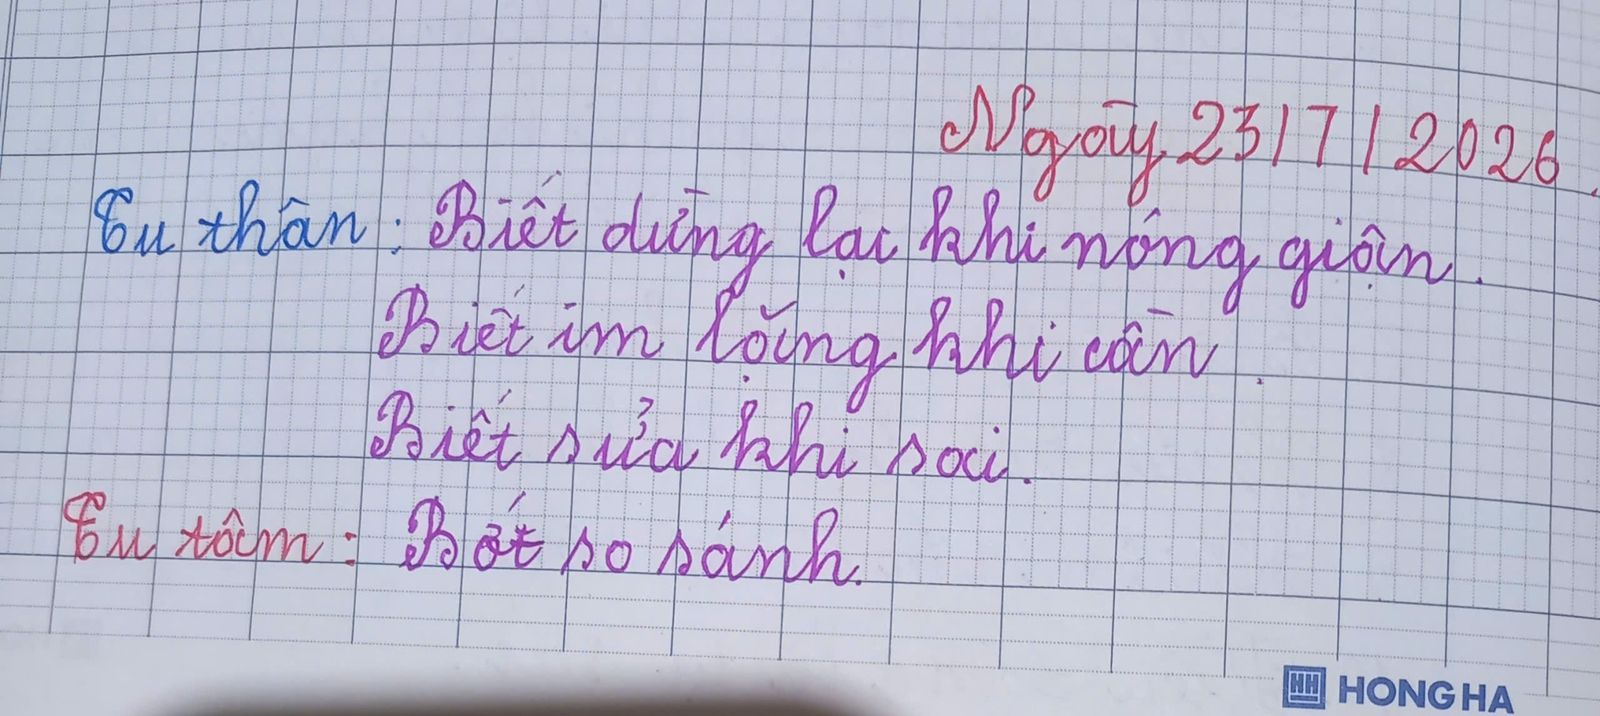 Ngày 23/7/2026.
Tu thân: Biết dừng lại khi nóng giận.
Biết im lặng khi cần.
Biết sửa khi sai.
Tu tâm: Bớt so sánh.
HONG HA